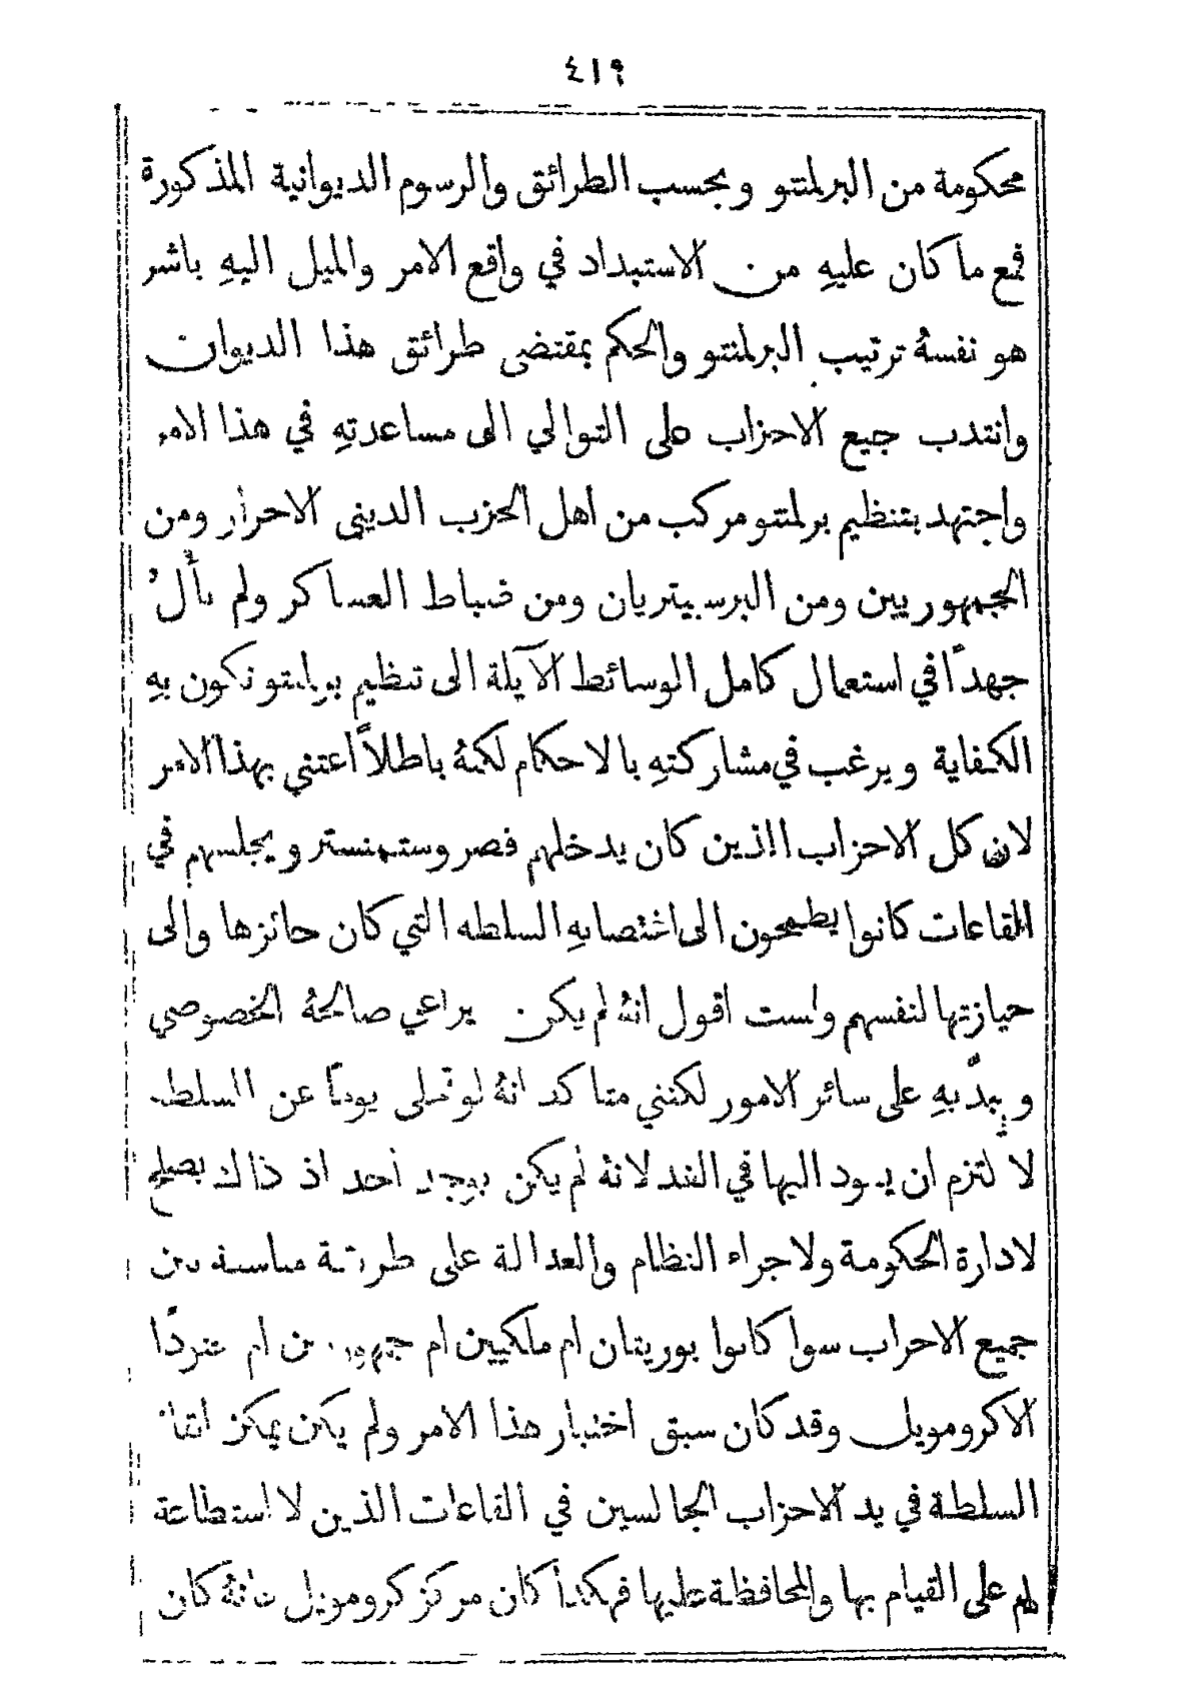 ٤١٩
محكومة من البرلمنتو وبحسب الطرائق والرسوم الديوانية المذكورة
فمع ما كان عليهِ من الاستبداد في واقع الامر والميل اليهِ باشر
هو نفسهُ ترتيب البرلمنتو والحكم بمقتضى طرائق هذا الديوان
وانتدب جميع الاحزاب على التوالي الى مساعدتهِ في هذا الامر
واجتهد بتنظيم برلمنتو مركب من اهل الحزب الديني الاحرار ومن
الجمهوريين ومن البرسبيتريان ومن ضباط العساكر ولم يألُ
جهدًا في استعمال كامل الوسائط الآيلة الى تنظيم برلمنتو تكون بهِ
الكفاية ويرغب في مشاركتهِ بالاحكام لكنهُ باطلاً اعتنى بهذا الامر
لان كل الاحزاب الذين كان يدخلهم قصر وستمنستر ويجلسهم في
القاعات كانوا يطمحون الى اغتصابهِ السلطه التي كان حائزها والى
حيازتها لنفسهم ولست اقول انهُ لم يكن يراعي صالحهُ الخصوصي
ويبدّيهِ على سائر الامور لكنني متاكد انهُ لو تخلى يومًا عن السلطة
لالتزم ان يعود اليها في الغد لانهُ لم يكن يوجد احد اذ ذاك يصلح
لادارة الحكومة ولاجراء النظام والعدالة على طريقة مناسبة من
جميع الاحزاب سوا كانوا بوريتان ام ملكيين ام جمهوريين ام
الاكرومويل وقد كان سبق اختبار هذا الامر ولم يكن يمكن ابقاء
السلطة في يد الاحزاب الجالسين في القاعات الذين لا استطاعة
لهم على القيام بها والمحافظة عليها فهكذا كان مركز كرومويل فانهُ كان